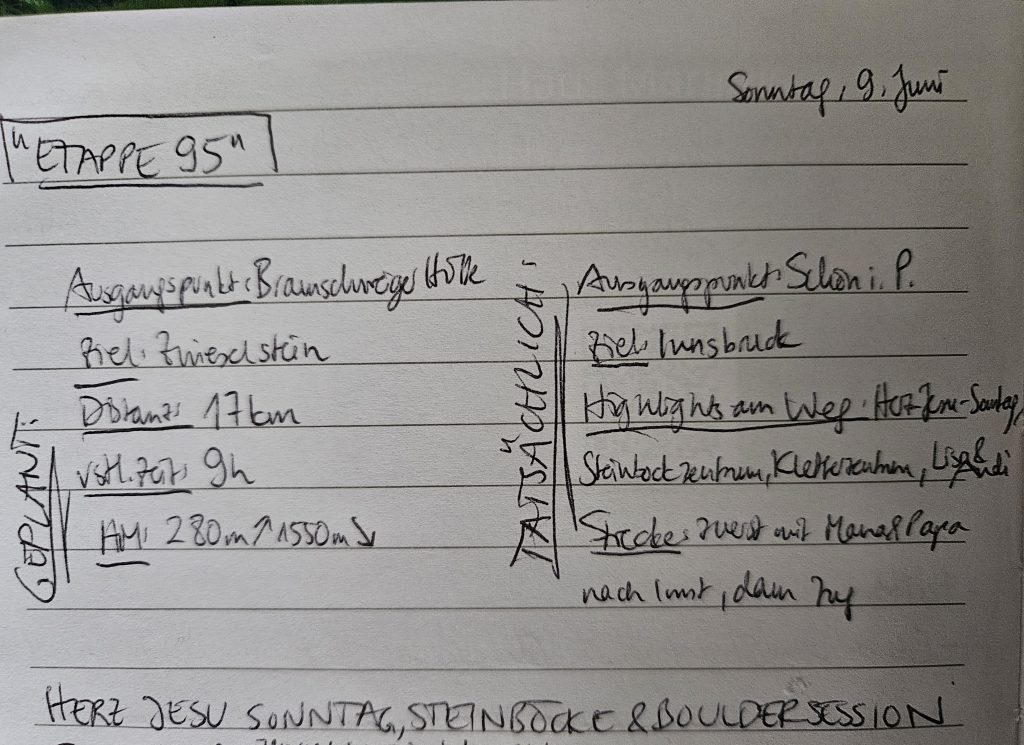 Sonntag, 9. Juni
"ETAPPE 95"
GEPLANT:
Ausgangspunkt: Braunschweiger Hütte
Ziel: Zwieselstein
Distanz: 17 km
vstl. Zeit: 9h
HM: 280m↑1550m↘
TATSÄCHLICH:
Ausgangspunkt: Schön i. P.
Ziel: Innsbruck
Highlights am Weg: Herz-Jesu-Sonntag,
Steinbockzentrum, Kletterzentrum, Lisa &
Strecke: zuerst mit Mama & Papa
nach Imst, dann Zug
HERZ JESU SONNTAG, STEINBÖCKE & BOULDERSESSION